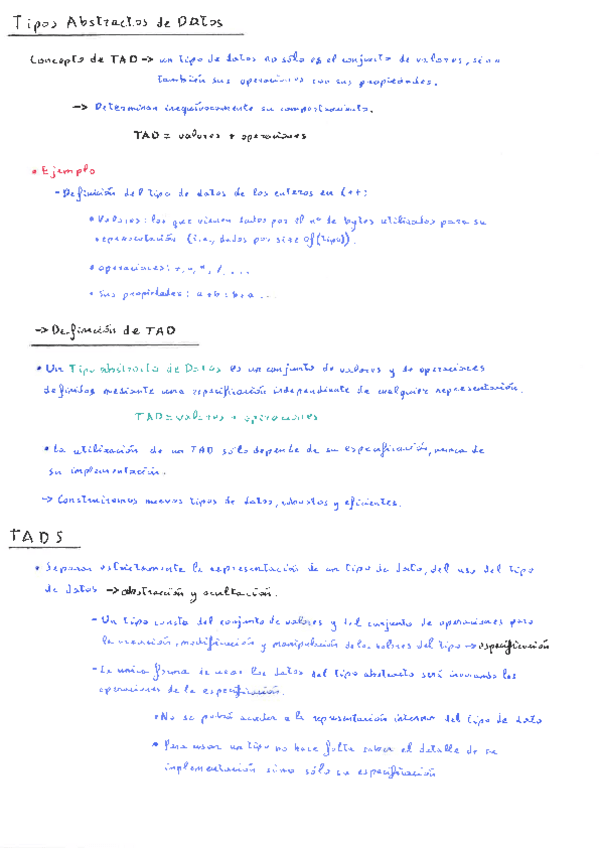 Tipos Abstractos de Datos
Concepto de TAD -> un tipo de datos no sólo es el conjunto de valores, sino
también sus operaciones con sus propiedades.
-> Determinan inequívocamente su comportamiento.
TAD = valores + operaciones
• Ejemplo
- Definición del tipo de datos de los enteros en C++:
• Valores: los que vienen dados por el nº de bytes utilizados para su
representación (i.e., dados por size of(tipo)).
• operaciones: +, -, *, /, ...
• Sus propiedades: a+b = b+a ...
-> Definición de TAD
• Un Tipo abstracto de Datos es un conjunto de valores y de operaciones
definidos mediante una especificación independiente de cualquier representación.
TAD = valores + operaciones
• La utilización de un TAD sólo depende de su especificación, nunca de
su implementación.
-> Construiremos nuevos tipos de datos, robustos y eficientes.
TADS
• Separar estrictamente la representación de un tipo de dato, del uso del tipo
de datos -> abstracción y ocultación.
- Un tipo consta del conjunto de valores y del conjunto de operaciones para
la creación, modificación y manipulación de los valores del tipo -> especificación
- La única forma de usar los datos del tipo abstracto será invocando las
operaciones de la especificación.
• No se podrá acceder a la representación interna del tipo de dato
• Para usar un tipo no hace falta saber el detalle de su
implementación sino sólo su especificación